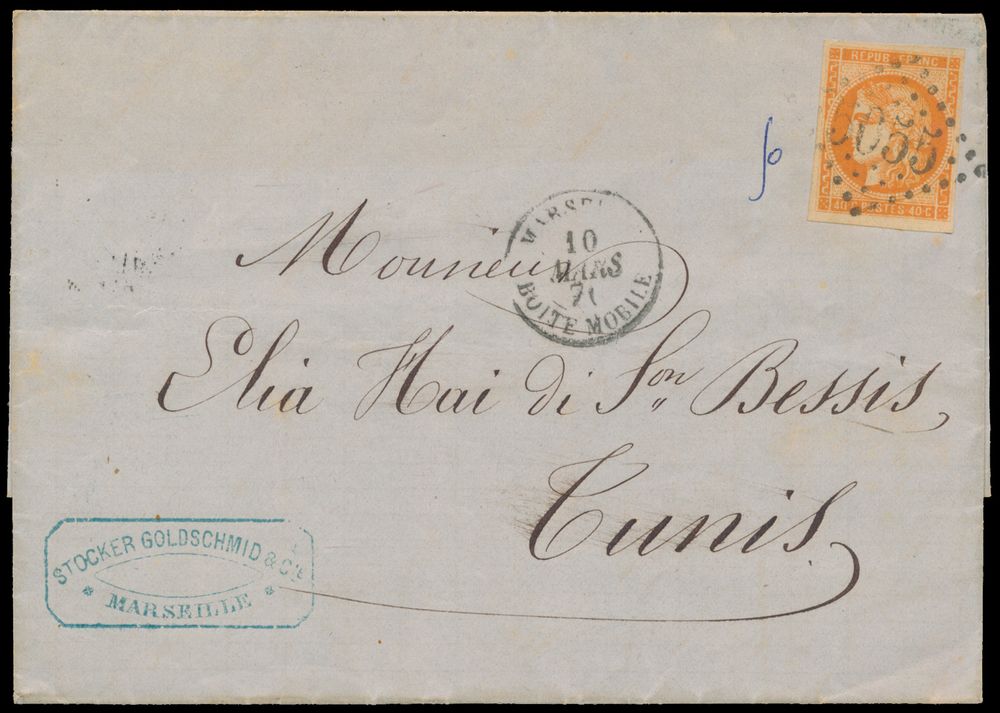 REPUB·FRANC·
40·C POSTES·40·C
10
MARS
71
BOITE MOBILE
Monsieur
Elia Hai di Son Bessis,
Tunis
STOCKER GOLDSCHMID & Cie
* MARSEILLE *